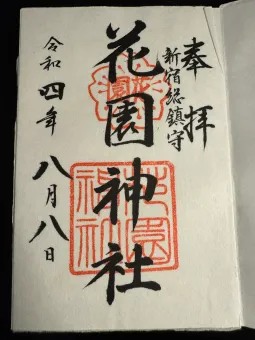 奉拝
新宿総鎮守
花園神社
令和四年八月八日
花園神社